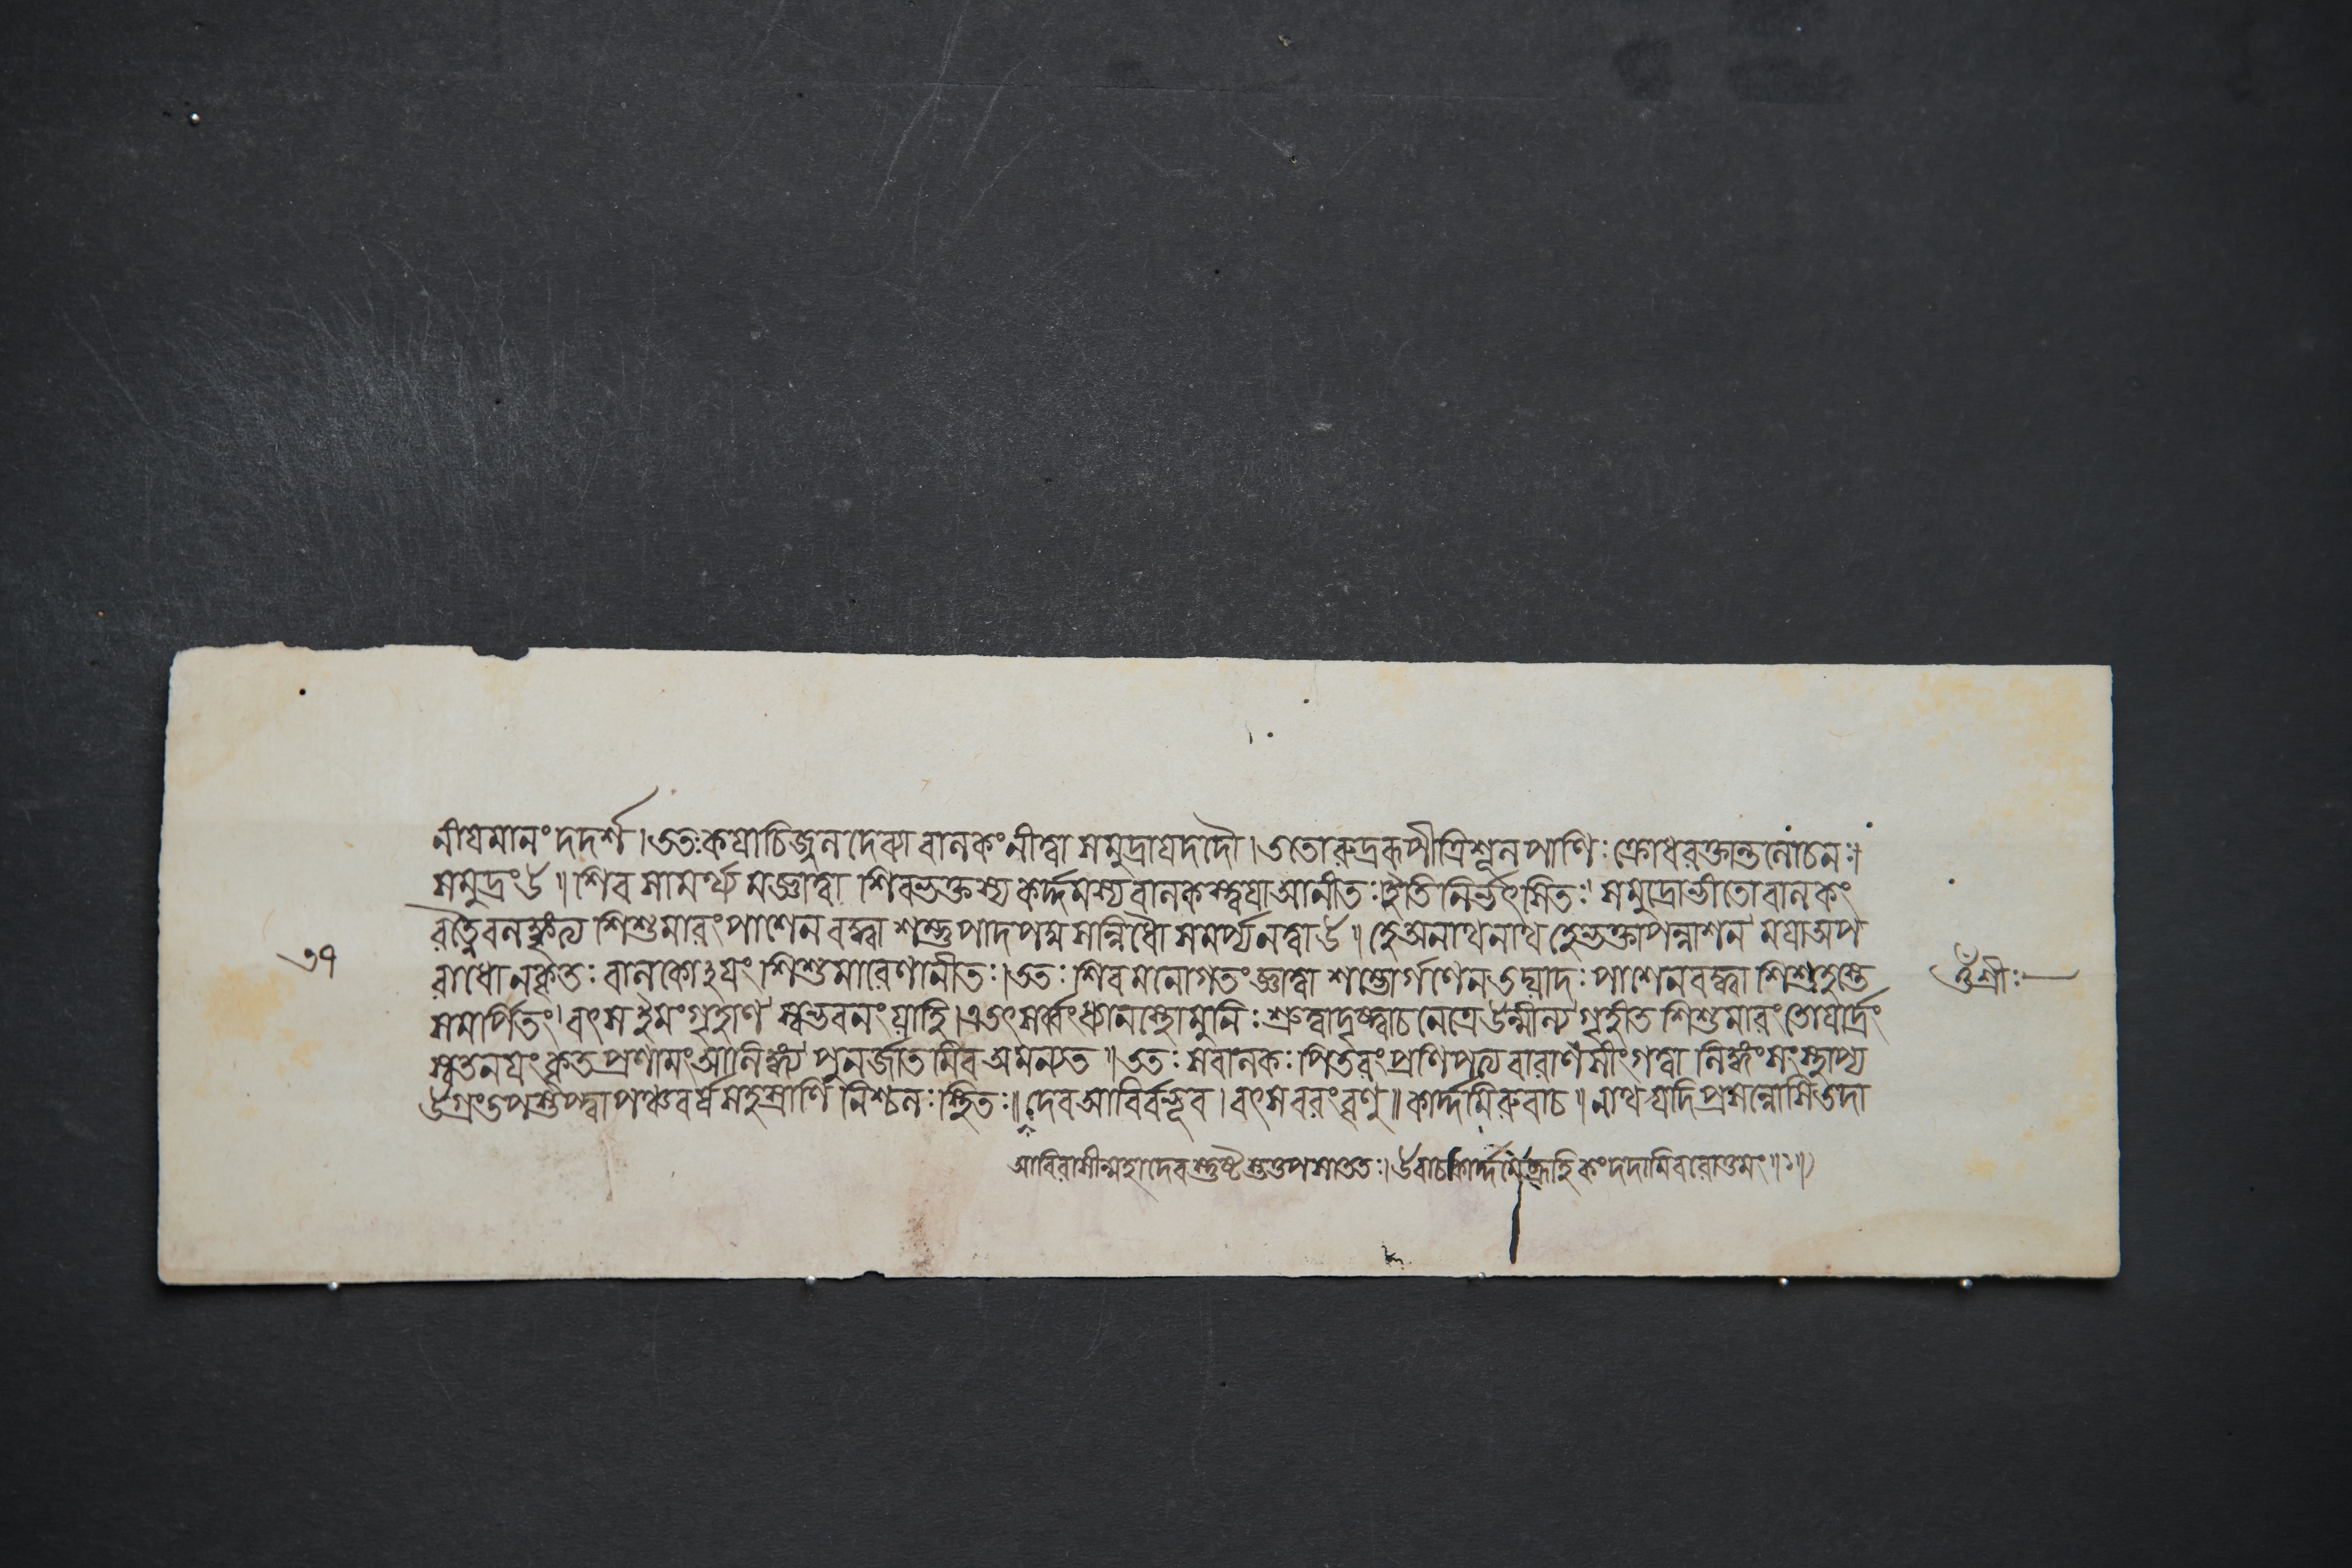 নীয়মানং দদর্শ । ততঃ কয়াচিজ্জলদেব্যা বালকং নীত্বা সমুদ্রায় দদৌ । ততো রুদ্ররূপী ত্রিশূলপাণিঃ ক্রোধরক্তান্তলোচনঃ ।
সমুদ্রং উ ॥ শিবসামর্থ্যমজ্ঞাত্বা শিবভক্তস্য কর্দ্দমস্য বালকস্ত্বয়া আনীতঃ । ইতি নির্ভর্ৎসিতঃ । সমুদ্রো ভীতো বালকং
শিশুমারং পাশেন বদ্ধ্বা শম্ভুপাদপদ্মসন্নিধৌ সমর্প্য নত্বা উ ॥ হে অনাথনাথ হে ভক্তাপন্নাশন ময়া অপ
রাধো ন কৃতঃ বালকোঽয়ং শিশুমারেণানীতঃ । ততঃ শিবমনোগতং জ্ঞাত্বা শম্ভোর্গণেন পাশেন বদ্ধ্বা শিশুহস্তে
সমর্পিতং । বৎস ইমং গৃহাণ স্বভবনং যাহি । এতৎ সর্ব্বং ধ্যানস্থো মুনিঃ শ্রুত্বা দৃষ্ট্বা চ নেত্রে উন্মীল্য গৃহীতশিশুমারং তোয়ার্দ্রং
কৃতপ্রণামং আলিঙ্গ্য পুনর্জাতমিব অমন্যত ॥ ততঃ স বালকঃ পিতরং প্রণিপত্য বারাণসীং গত্বা লিঙ্গং সংস্থাপ্য
উগ্রং তপস্তপ্ত্বা পঞ্চবর্ষসহস্রাণি নিশ্চলঃ স্থিতঃ ॥ দেব আবির্বভূব । বৎস বরং বৃণু ॥ কার্দ্দমিরুবাচ ॥ নাথ যদি প্রসন্নোসি তদা
আবিরাসীন্মহাদেবস্তুষ্টস্তত্তপসা ততঃ । উবাচ কার্দ্দমে ব্রূহি কং দদামি বরোত্তমং ॥ ১ ॥
৩৭
ওঁ শ্রীঃ